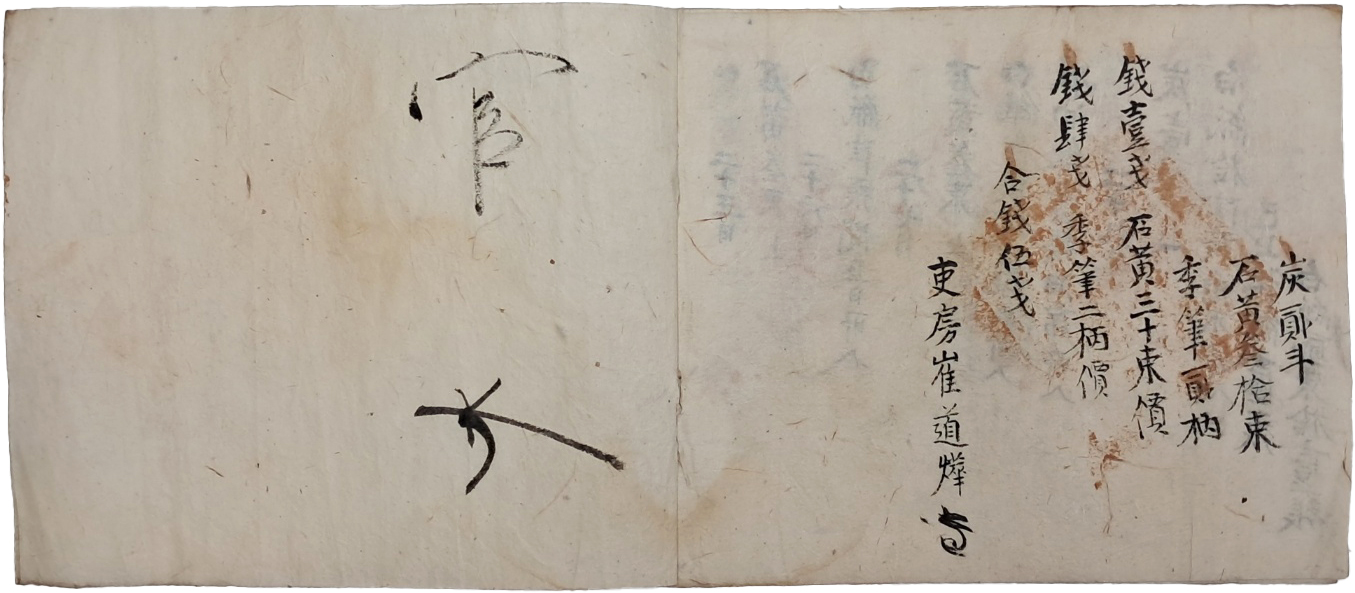 炭貳斗
石黃叄拾束
季筆貳柄
錢壹戔 石黃三十束價
錢肆戔 季筆二柄價
合錢伍戔
吏房崔道燁
官